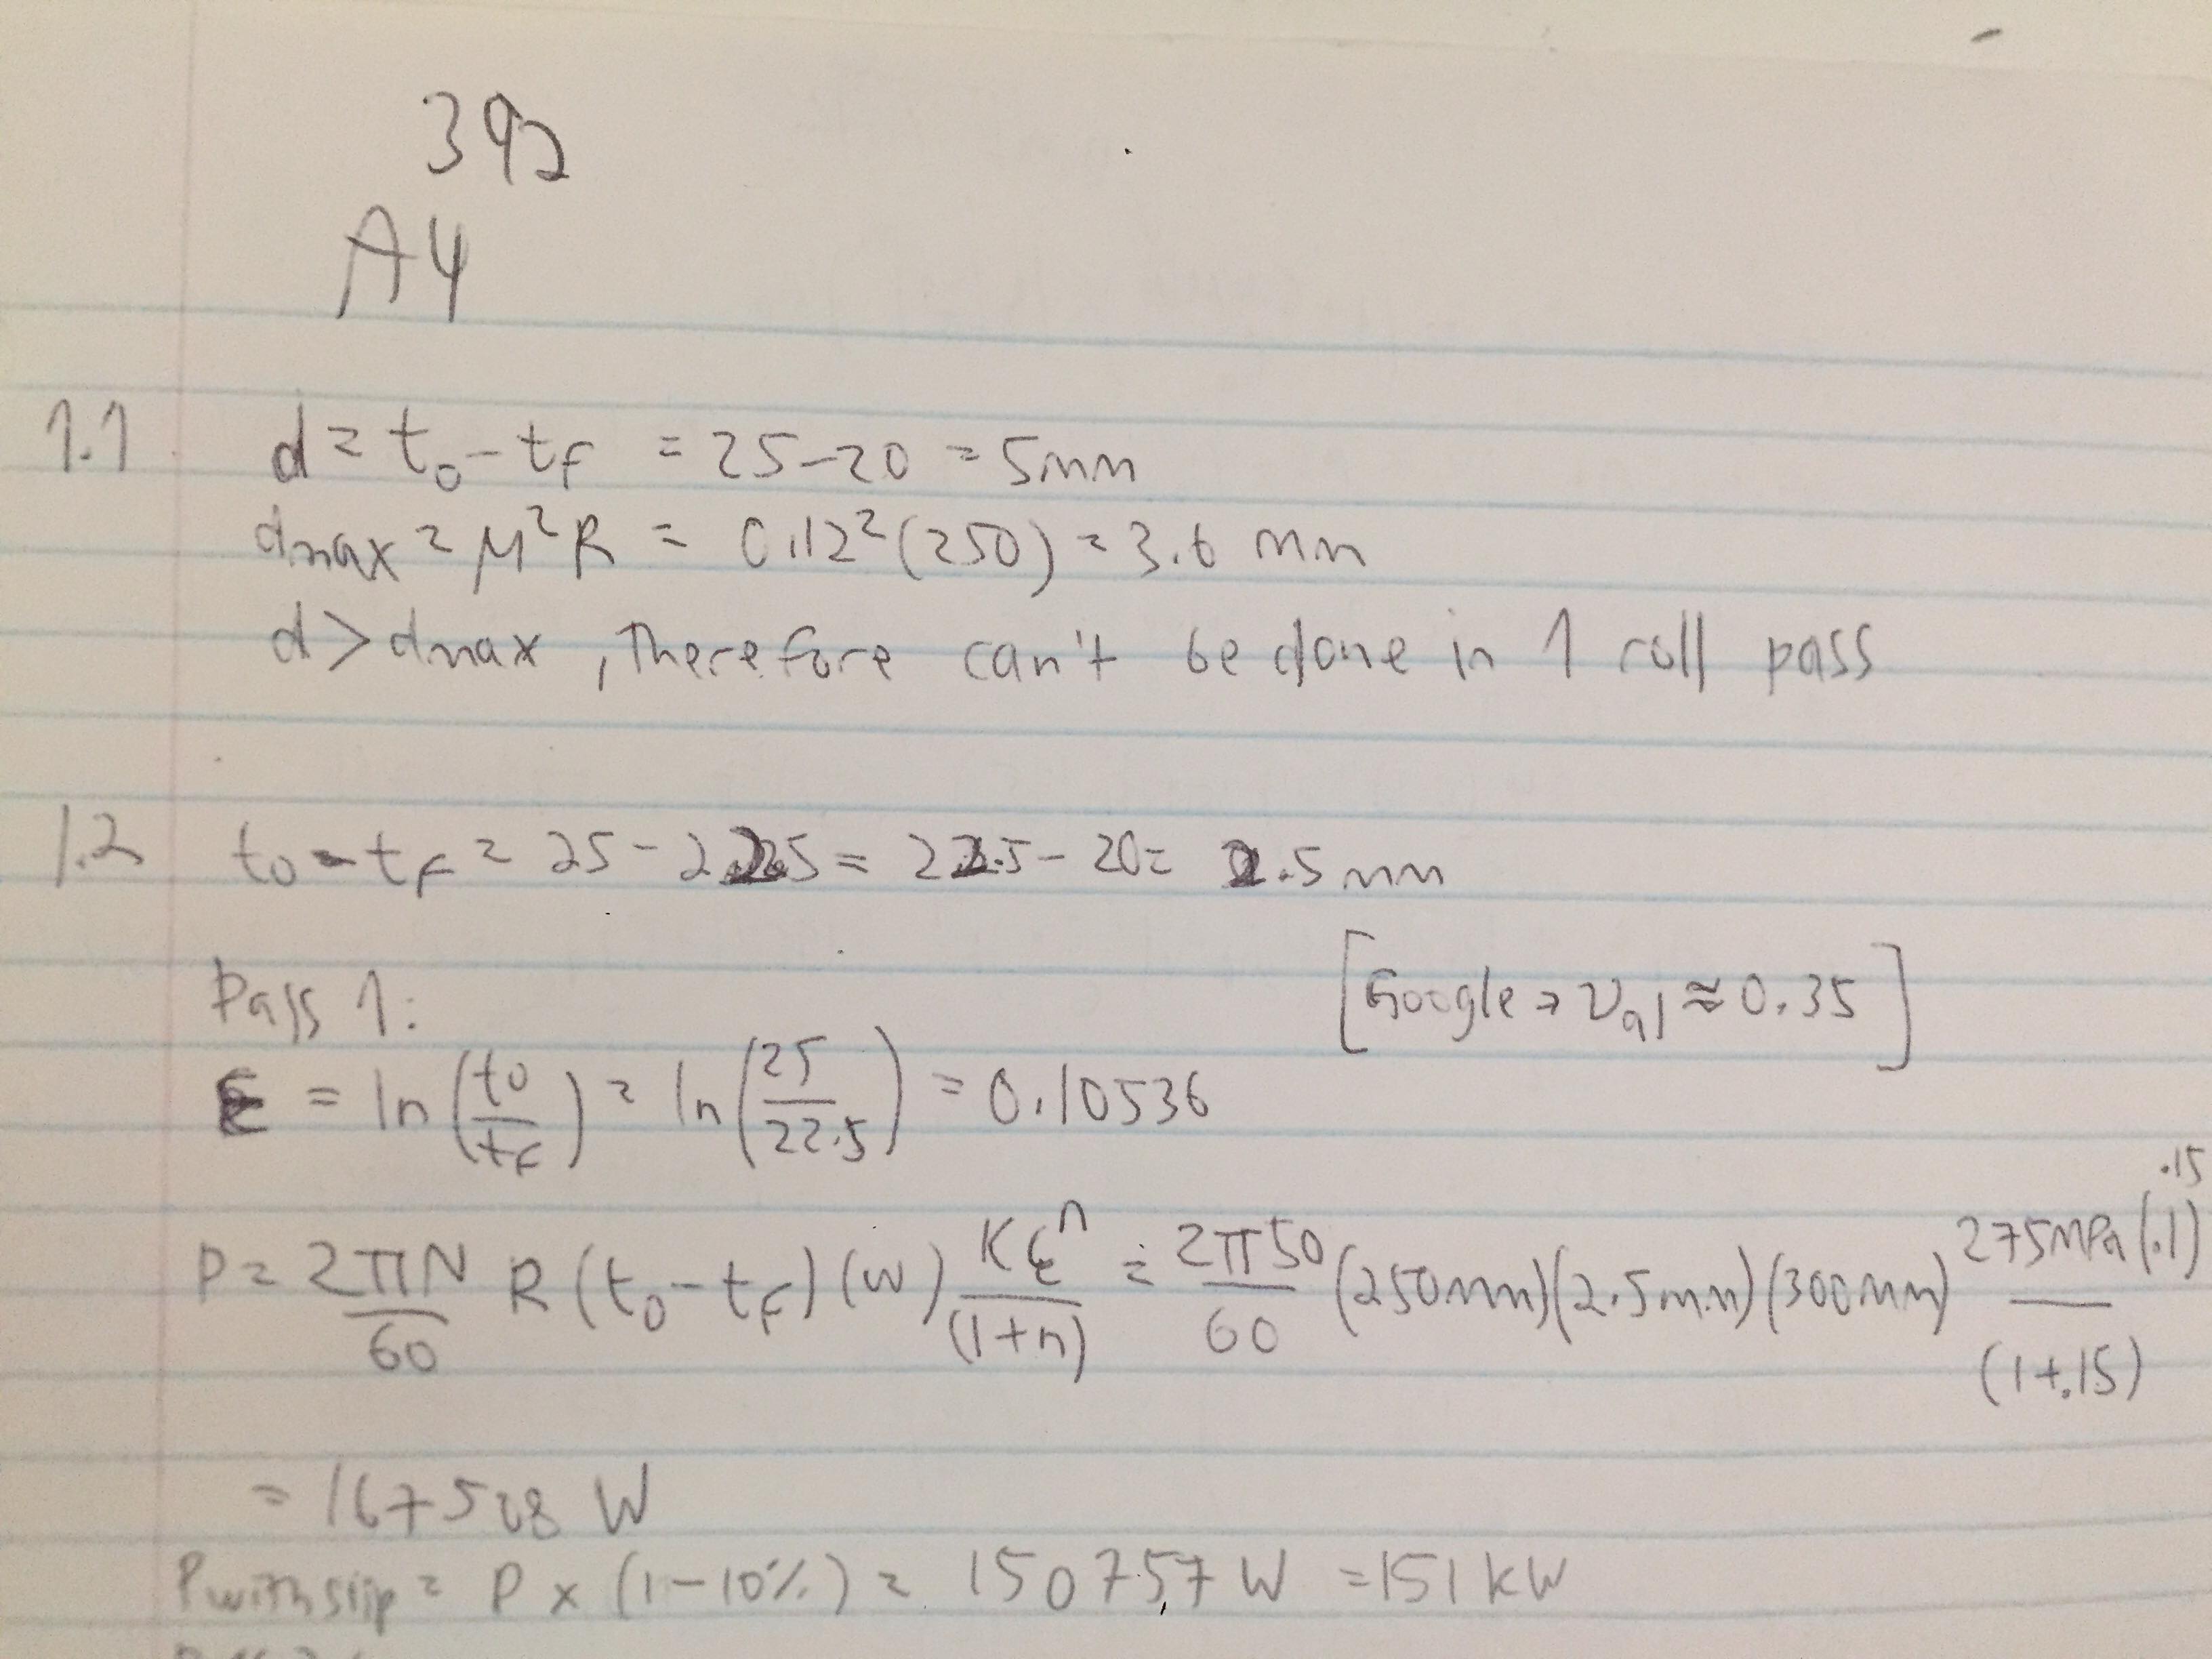 392
A4
1.1 d = t₀ - tf = 25-20 = 5mm
dmax = μ²R = 0.12²(250) = 3.6 mm
d > dmax, Therefore can't be done in 1 roll pass
1.2 t₀ - tf = 25 - 22.5 = 22.5 - 20 = 2.5 mm
Pass 1: [Google → νal ≈ 0.35]
ε = ln(t₀/tf) = ln(25/22.5) = 0.10536
P = 2πN/60 R(t₀-tf)(w) Kεⁿ/(1+n) = 2π50/60 (250mm)(2.5mm)(300mm) 275MPa(.1)^.15/(1+.15)
= 167508 W
Pwithslip = P x (1-10%) = 150757 W = 151 kW